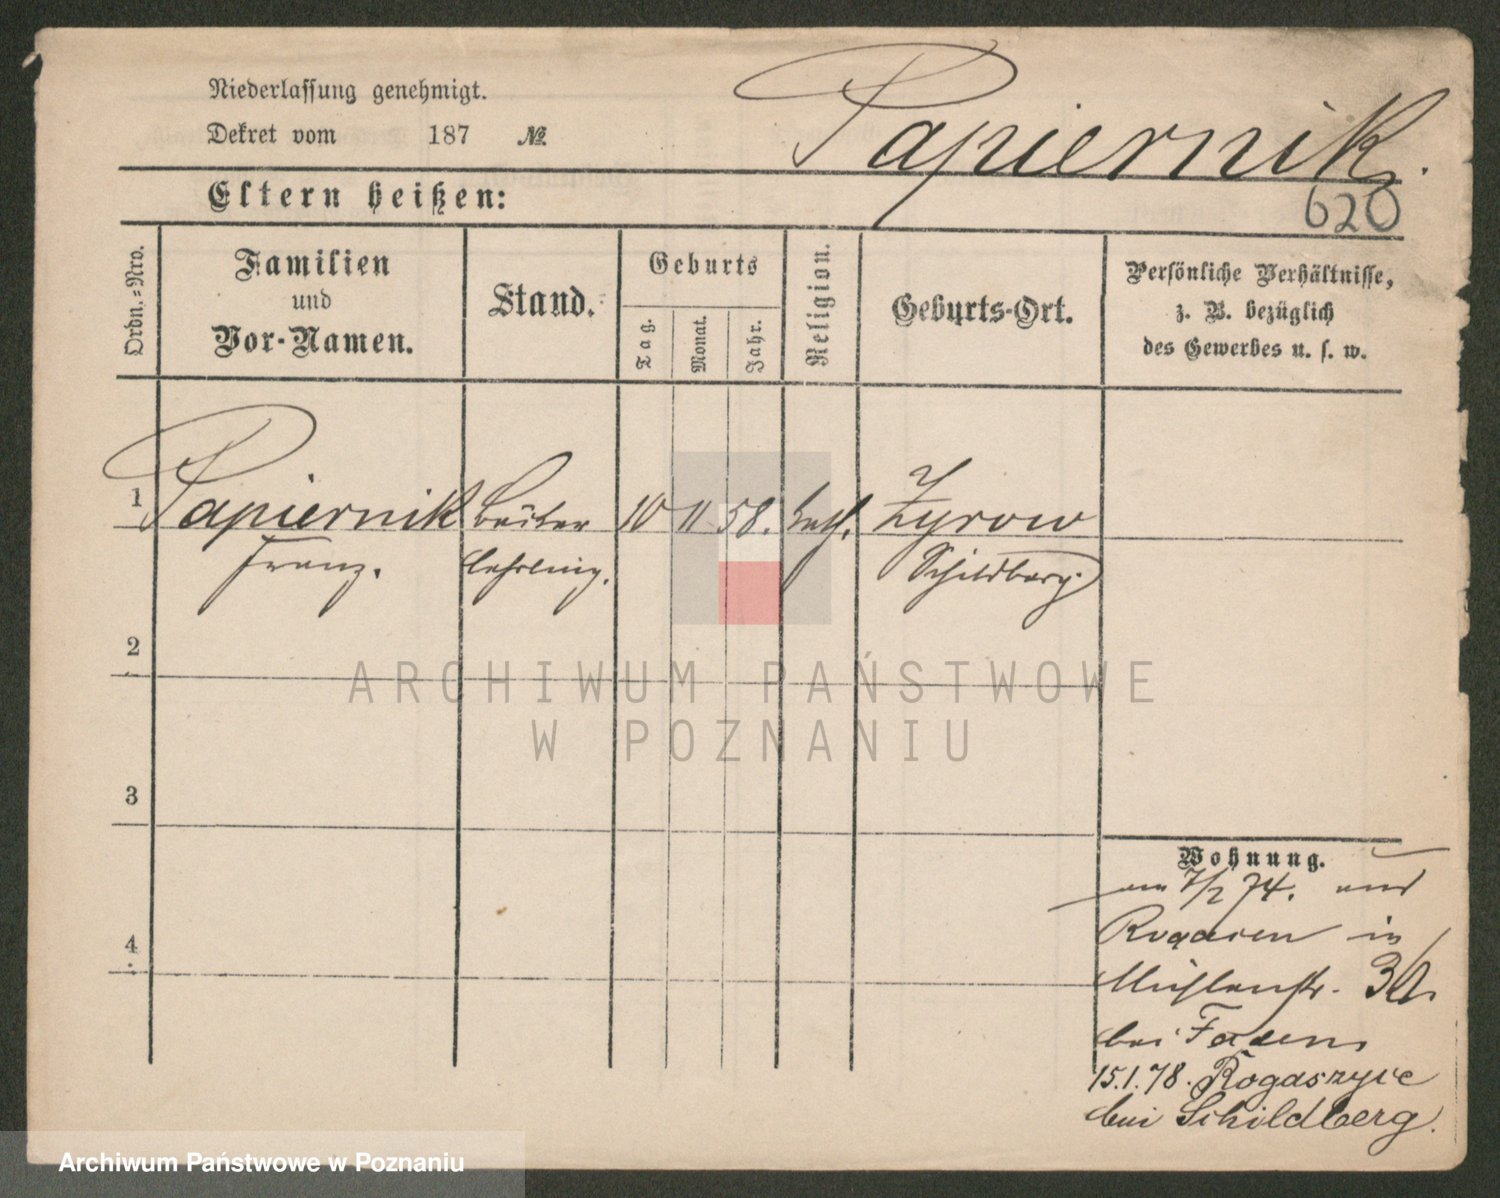 Niederlassung genehmigt.
Dekret vom 187 №
Papiernik.
620
Eltern heißen:
Ordn.-Nro.
Familien
und
Vor-Namen.
Stand.
Geburts
Tag.
Monat.
Jahr.
Religion.
Geburts-Ort.
Persönliche Verhältnisse,
z. B. bezüglich
des Gewerbes u. s. w.
1 Papiernik 10 11 58. kath. Zyrow
Franz. lehrling. Schildberg
2
3
4
ARCHIWUM PAŃSTWOWE
W POZNANIU
Wohnung.
am 7/2 74. aus
Rogasen in
Mühlenstr.
bei
15.1.78. Rogaszyce
bei Schildberg.
Archiwum Państwowe w Poznaniu